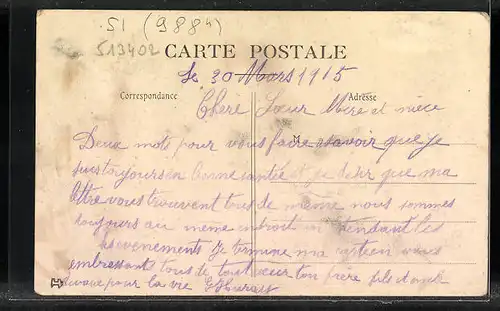 51 (9884)
513402
CARTE POSTALE
le 30 Mars 1915
Correspondance
Adresse
Chere Sœur Mère et nièce
Deux mots pour vous faire savoir que je
suis toujours en bonne santée et je desir que ma
lettre vous trouvent tous de même nous sommes
toujours au meme endroit en attendant les
evenements Je termine ma carte en vous
embrassant tous de tout cœur ton frère fils et oncle
pour la vie